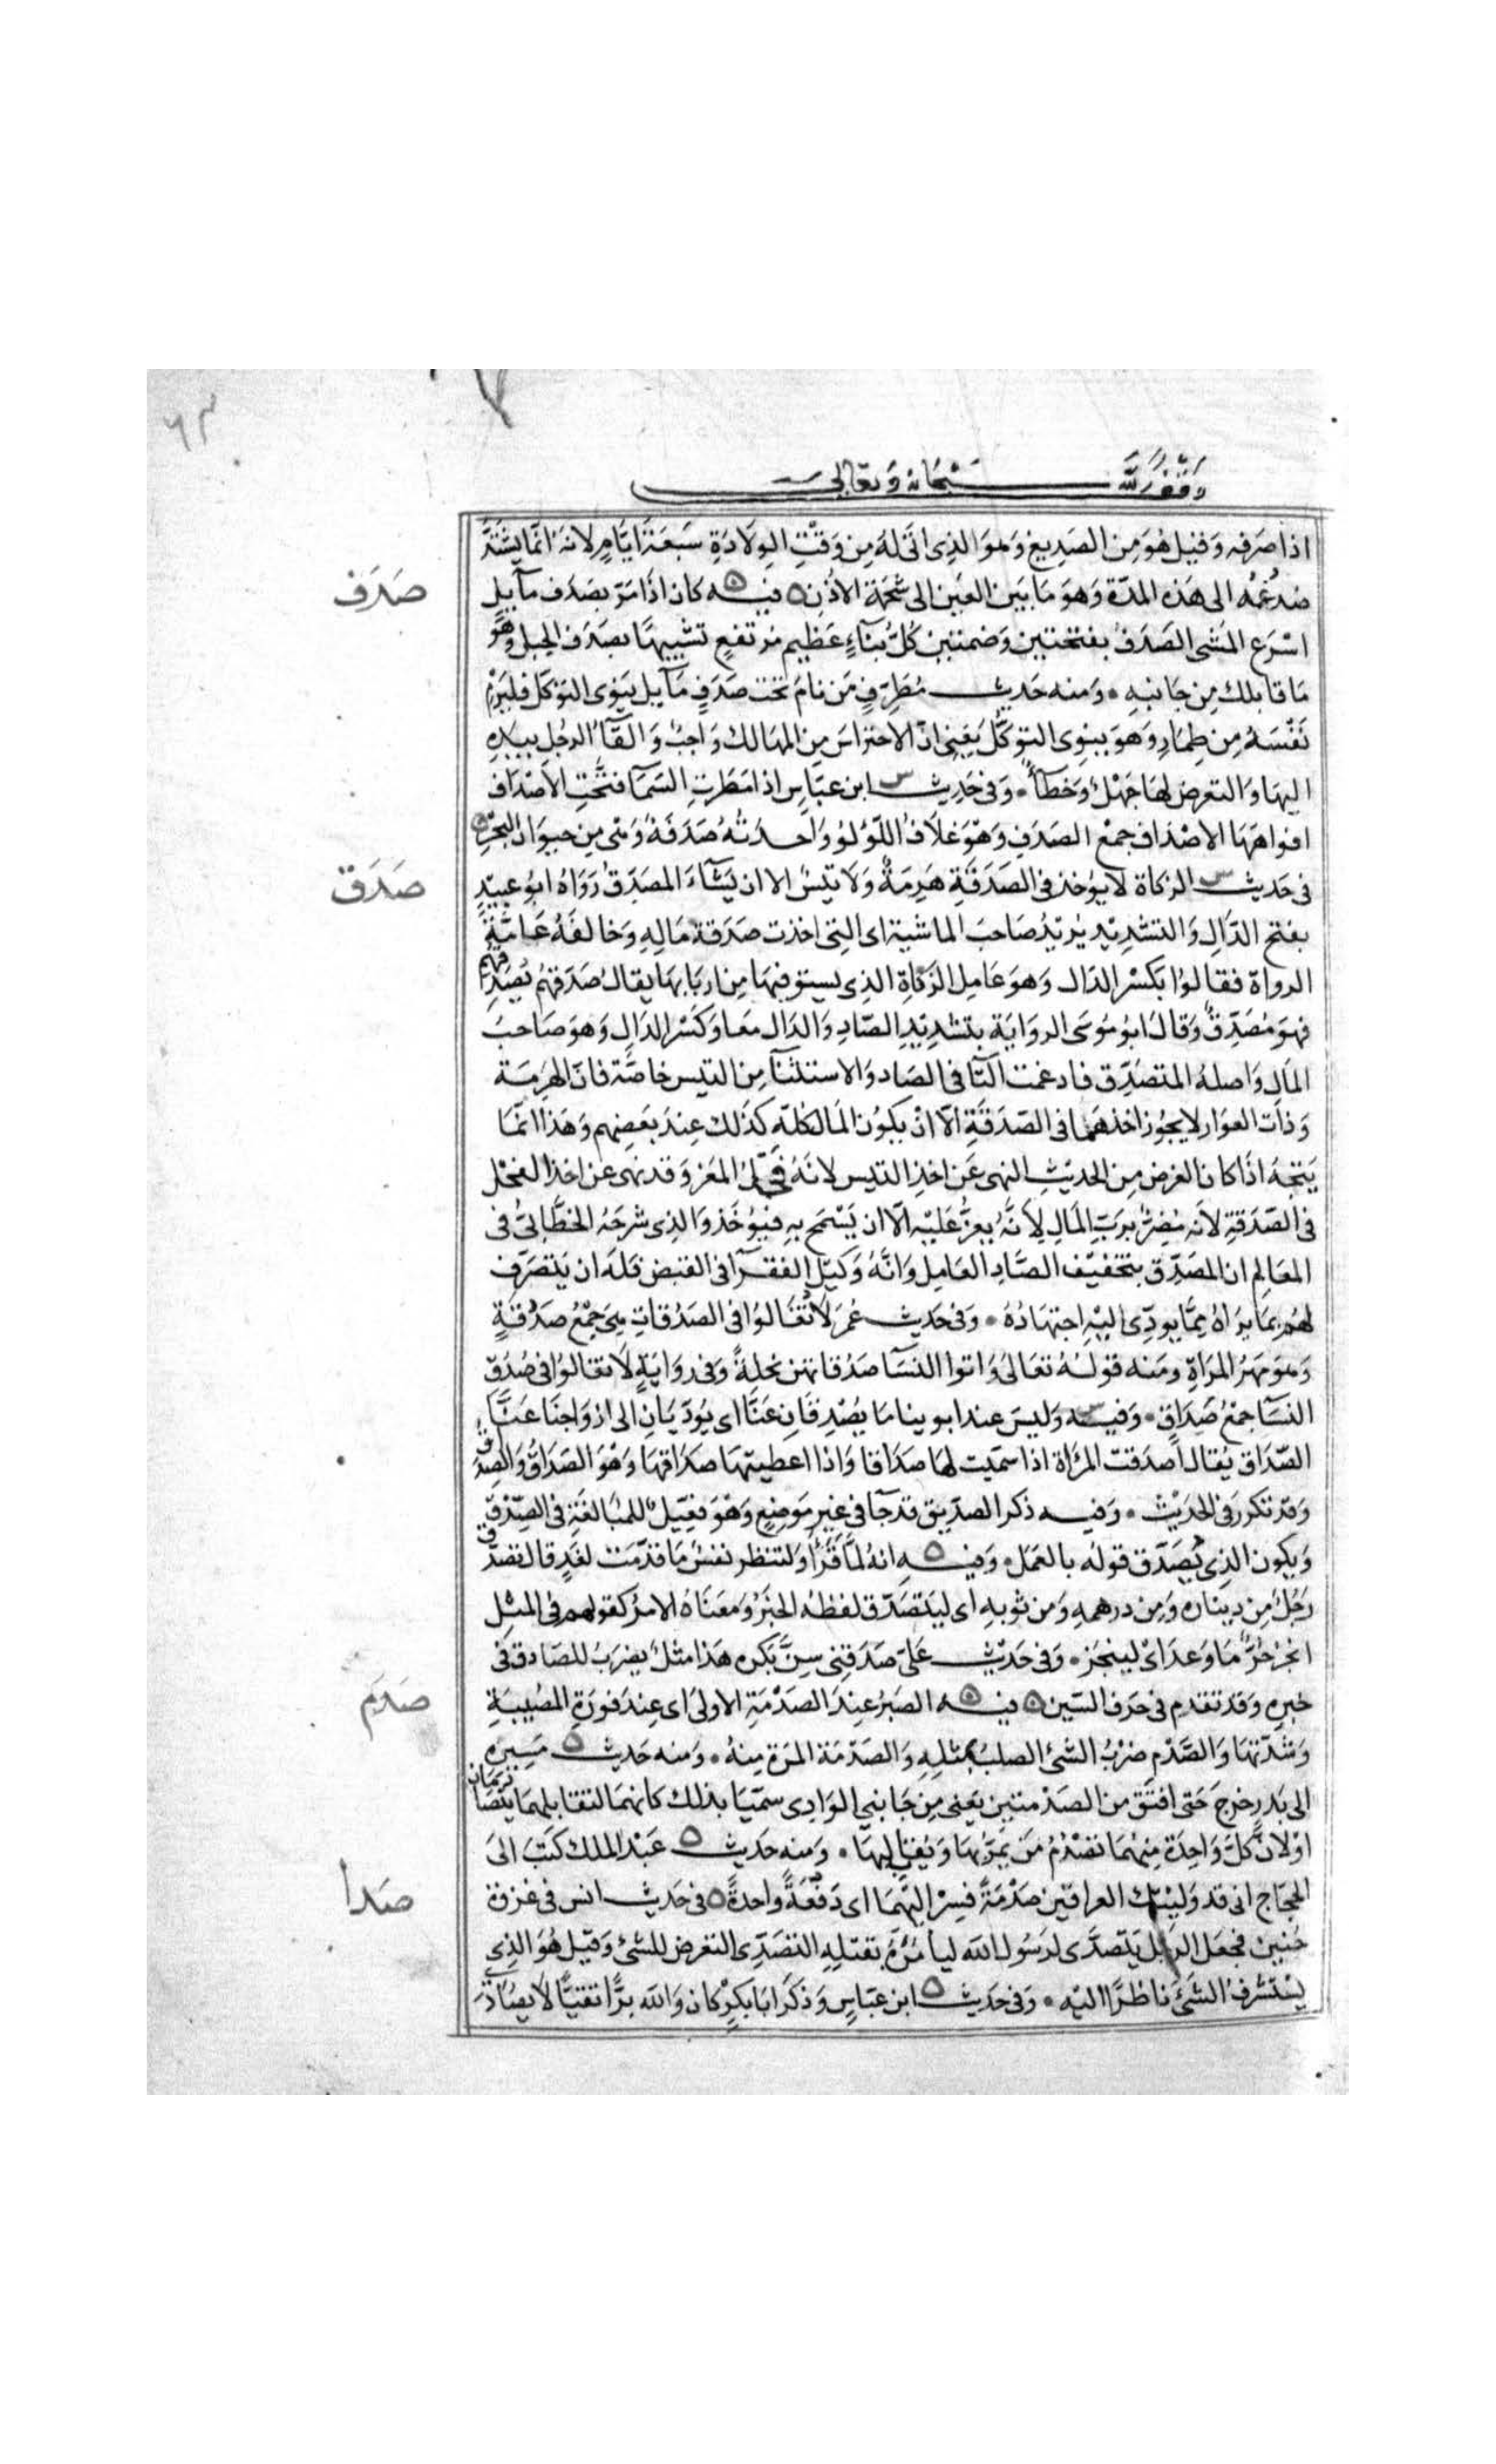 ٦٣
وقف لله سبحانه وتعالى
اذا صَرفه وقيل هُوَ مِن الصَدِيغ وَهوَ الذِى اتىَ لهُ مِن وَقتِ الوِلَادَةِ سَبعَة ايَّامٍ لانهُ انمّا يشتدّ
صَدَف
صُدغهُ الى هَذه المدّة وَهوَ مَا بَين العَين الى شحَمة الاذُن ٥ فيه كان اذَا مَرّ بصَدَف مآيل
اسْرَع المَشى الصَدَفُ بفتحتين وَضمتين كلُّ بنآءٍ عَظِيم مُرتفعٍ تشبيهًا بصَدَف الجبل وَهُو
مَا قابلك مِن جَانبهِ ٠ وَمنه حَديث مُطَرِّفٍ مَن نامَ تحت صَدَفٍ مآيل يَنوِى التوَكل فليَرْمِ
نَفْسَهُ مِن طِمَارِ وَهوَ ينوِى التوَكّلُ يَعنِى انّ الاحتراسَ مِن المهَالك وَاجبُ وَالقآءُ الرجُلِ بيدِهِ
اليهَا وَالتعرض لهَا جَهْلٌ وَخَطآءٌ ٠ وَفى حَدِيث س ابن عبّاسِ اذا مَطَرَتِ السَمآ فتحَتِ الاصْدَاف
افواهَهَا الاصْدَاف جمْع الصَدَفِ وَهْوَ غلاَف اللؤلؤ وَاحدَتهُ صَدَفَةُ وَهى مِن حيوَان البَحرِ ٥
صَدَق
فى حَديث س الزكاة لا يُؤخذ فى الصَدَقَةِ هَرِمَةٌ وَلا تيسٌ الا ان يَشآءَ المصَدَّقُ رَوَاهُ ابُو عبيدٍ
بفتح الدّالِ وَالتشدِيد يُرِيدُ صَاحبَ الماشية اى التى اخذت صَدَقة مَالِهِ وَخالفَهُ عَامَّةُ
الرواة فقالوُا بكسْر الدال وَهوَ عَامِل الزكاةِ الذِى يستوفيهَا مِن اربَابهَا يقالُ صَدَّقهُم يُصَدِّقهم
فهوَ مُصَدِّقٌ وَقالَ ابوُ مُوسَى الروايَة بتشدِيدِ الصّادِ وَالدَال معًا وَكسْر الدَالِ وَهوَ صَاحبُ
المَالِ وَاصلهُ المتصَدِّق فادغمت التآ فى الصَاد وَالاستثنآ مِن التيس خاصَّة فانّ الهرِمَة
وَذات العوار لا يجُوز اخذهمَا فى الصّدَقَةِ الاّ انْ يكوُن المَال كلّه كذلك عِندَ بَعضِهم وَهَذا انمَّا
يَتجهُ اذَا كان الغرض مِن الحديثِ النهى عَن اخذِ التيس لانَهُ فَحْلُ المعَز وَقد نهى عن اخذ الفحْل
فى الصّدَقةِ لانه مُضِرٌّ برَبّ المَالِ لأنَّهُ يعِزُّ عَليْهِ الاّ ان يَسْمَحَ بهِ فيُؤخَذ وَالذِى شرحَهُ الخطّابيّ فى
المعَالِم ان المصَدِّق بتخفيْف الصَّادِ العَامِل وَانَّهُ وَكيل الفقرَآ فى القبض فلهُ ان يَتصَرّف
لهُم بمَا يرَاهُ مِمَّا يودِّى اليْهِ اجتهَادُهُ ٠ وَفى حَديث عُمَرَ لَا تُغَالوُا فى الصَدُقاتِ هِىَ جَمْعُ صَدُقةٍ
وَهوَ مَهرُ المرَاةِ ومَنه قولهُ تعَالى وَاتوا النسَآ صَدُقاتهن نحلةً وَفى روَايَةٍ لَا تغالوُا فى صُدُق
النسَآ جمْعُ صَدَاقٍ ٠ وَفيه وَليسَ عند ابوينا مَا يُصْدِقانِ عَنَّا اى يُودّيَانِ الى ازوَاجنَا عَنَّا
الصّدَاق يُقال اَصدَقتُ المرْاة اذا سمّيت لهَا صَدَاقا وَاذا اعطيتهَا صدَاقهَا وَهْوَ الصَدَاقُ وَالصِدَاق
وَقد تكرر فى الحَديْث ٠ وَفيه ذكر الصدِّيق قد جآ فى غير مَوضِعٍ وَهْوَ فِعِّيل للمُبَالغَةِ فى الصِّدْق
وَيكون الذِى يُصَدّق قولهُ بالعَمَل ٠ وَفيهِ ٥ انهُ لمَّا قَرأ وَلتنظر نفسٌ مَا قدّمَت لغَدٍ قال تصَدّق
رَجُلُ مِن دِيناره وَمِن درهمهِ وَمن ثوبهِ اى ليَتصَدّق لفظهُ الخبَرُ وَمعنَاهُ الامرُ كقولهم فى المثل
انجَزَ حُرٌّ مَا وَعدَ اىْ لينجز ٠ وَفى حَدِيْث عَلىّ صَدَقنِى سِنَّ بَكرِه هَذا مثلٌ يضرَبُ للصَادق فى
صَدَم
خبرِهِ وَقد تقدم فى حَرف السّين ٥ فيه ٥ الصَبرُ عِندَ الصَدْمَةِ الاولىَ اى عِندَ فورَةِ المُصِيبَةِ
وَشدّتهَا وَالصَّدْم ضرْبُ الشئ الصلب بمثلِهِ وَالصَدْمَة المرَة مِنهُ ٠ وَمنه حَديث ٥ مَسِيرِهِ
الى بَدرٍ خرج حَتى افتق من الصَدْمتين يَعنى مِن جَانبي الوَادِى سمّيَا بذلك كانهمَا لتقابلهمَا يتصَادمَان
اوْلانَّ كلَّ وَاحِدَة مِنْهُمَا تصْدُمُ مَن يَمرُّ بهَا وَيُقابلهَا ٠ وَمنه حَديث ٥ عَبْد الملك كتبَ الىَ
صَدا
الحجّاجِ انى قد وَليْتك العراقين صَدْمَةً فَسِرْ اليْهمَا اى دَفعَةً واحدةً ٥ فى حَديث انس فى غزوة
حُنين فجعَل الرجل يَتصَدَّى لرَسُول الله ليأمُرَهُ بقتلِهِ التصَدِّى التعَرض للشئ وَقيْل هُوَ الذِى
يَسْتشرِفُ الشئَ نَاظرًا اليْه ٠ وَفى حَديث ٥ ابن عبّاسٍ وَذكَرَ ابَا بكرٍ كانَ وَالله برًّا تقيًّا لَا يصَادَى